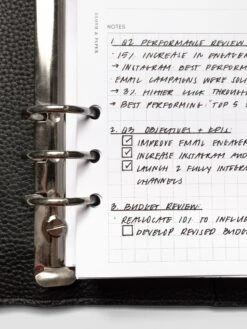 NOTES
1. Q2 PERFORMANCE REVIEW
· 15% INCREASE IN ENGAGEM
→ INSTAGRAM BEST PERFORM
EMAIL CAMPAIGNS WERE SOLI
→ 3% HIGHER CLICK THROUGH
→ BEST PERFORMING: "TOP 5
2. Q3 OBJECTIVES + KPIS
☑ IMPROVE EMAIL ENGAGEM
☑ INCREASE INSTAGRAM AUD
☑ LAUNCH 2 FULLY INTEGRA
CHANNELS
3. BUDGET REVIEW
· REALLOCATE 10% TO INFLUE
☐ DEVELOP REVISED BUDG
CLOTH & PAPER